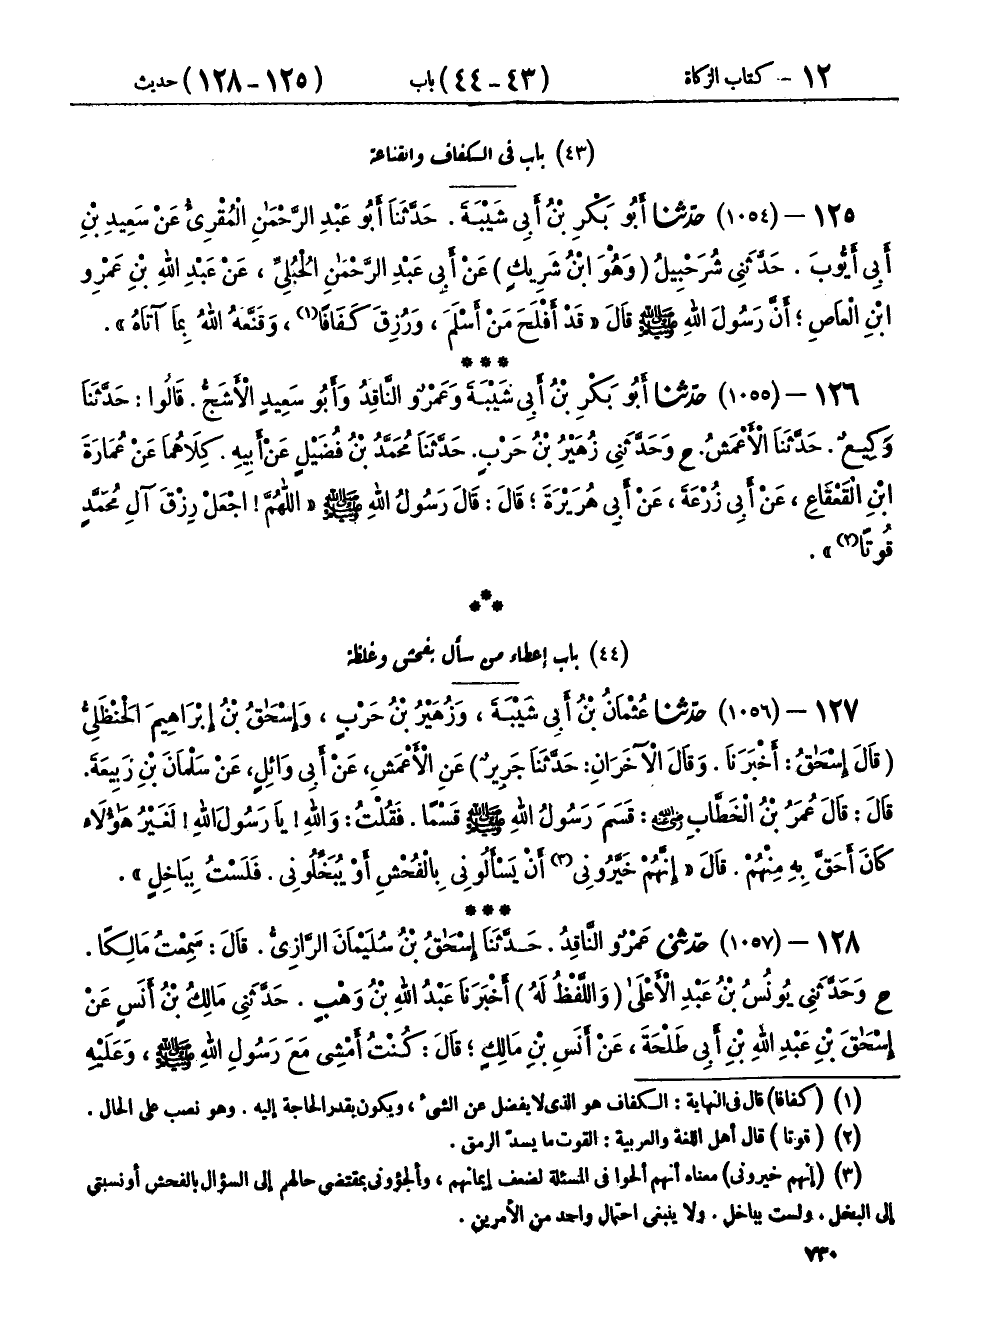 ١٢ - كتاب الزكاة (٤٣ - ٤٤) باب (١٢٥ - ١٢٨) حديث
(٤٣) باب فى الكفاف والقناعة
١٢٥ – (١٠٥٤) حَدَّثَنَا أَبُو بَكْرِ بْنُ أَبِي شَيْبَةَ . حَدَّثَنَا أَبُو عَبْدِ الرَّحْمَٰنِ الْمُقْرِئُ عَنْ سَعِيدِ بْنِ
أَبِي أَيُّوبَ . حَدَّثَنِي شُرَحْبِيلُ (وَهُوَ ابْنُ شَرِيكٍ) عَنْ أَبِي عَبْدِ الرَّحْمَٰنِ الْحُبُلِيِّ ، عَنْ عَبْدِ اللهِ بْنِ عَمْرِو
ابْنِ الْعَاصِ ؛ أَنَّ رَسُولَ اللهِ ﷺ قَالَ « قَدْ أَفْلَحَ مَنْ أَسْلَمَ ، وَرُزِقَ كَفَافًا(١) ، وَقَنَّعَهُ اللهُ بِمَا آتَاهُ » .
***
١٢٦ – (١٠٥٥) حَدَّثَنَا أَبُو بَكْرِ بْنُ أَبِي شَيْبَةَ وَعَمْرٌو النَّاقِدُ وَأَبُو سَعِيدٍ الْأَشَجُّ . قَالُوا : حَدَّثَنَا
وَكِيعٌ . حَدَّثَنَا الْأَعْمَشُ. ع وَحَدَّثَنِي زُهَيْرُ بْنُ حَرْبٍ. حَدَّثَنَا مُحَمَّدُ بْنُ فُضَيْلٍ عَنْ أَبِيهِ . كِلَاهُمَا عَنْ عُمَارَةَ
ابْنِ الْقَعْقَاعِ ، عَنْ أَبِي زُرْعَةَ ، عَنْ أَبِي هُرَيْرَةَ ؛ قَالَ : قَالَ رَسُولُ اللهِ ﷺ « اللَّهُمَّ ! اجْعَلْ رِزْقَ آلِ مُحَمَّدٍ
قُوتًا(٢) » .
***
(٤٤) باب إعطاء من سأل بفحش وغلظة
١٢٧ – (١٠٥٦) حَدَّثَنَا عُثْمَانُ بْنُ أَبِي شَيْبَةَ ، وَزُهَيْرُ بْنُ حَرْبٍ ، وَإِسْحَٰقُ بْنُ إِبْرَاهِيمَ الْحَنْظَلِيُّ
( قَالَ إِسْحَٰقُ : أَخْبَرَنَا . وَقَالَ الْآخَرَانِ: حَدَّثَنَا جَرِيرٌ) عَنِ الْأَعْمَشِ، عَنْ أَبِي وَائِلٍ، عَنْ سَلْمَانَ بْنِ رَبِيعَةَ.
قَالَ : قَالَ عُمَرُ بْنُ الْخَطَّابِ رضي الله عنه : قَسَمَ رَسُولُ اللهِ ﷺ قَسْمًا . فَقُلْتُ: وَاللهِ ! يَا رَسُولَ اللهِ ! لَغَيْرُ هَٰؤُلَاءِ
كَانَ أَحَقَّ بِهِ مِنْهُمْ . قَالَ « إِنَّهُمْ خَيَّرُونِي(٣) أَنْ يَسْأَلُونِي بِالْفُحْشِ أَوْ يُبَخِّلُونِي . فَلَسْتُ بِبَاخِلٍ » .
***
١٢٨ – (١٠٥٧) حَدَّثَنِي عَمْرٌو النَّاقِدُ . حَدَّثَنَا إِسْحَٰقُ بْنُ سُلَيْمَانَ الرَّازِيُّ . قَالَ : سَمِعْتُ مَالِكًا .
ع وَحَدَّثَنِي يُونُسُ بْنُ عَبْدِ الْأَعْلَىٰ (وَاللَّفْظُ لَهُ) أَخْبَرَنَا عَبْدُ اللهِ بْنُ وَهْبٍ . حَدَّثَنِي مَالِكُ بْنُ أَنَسٍ عَنْ
إِسْحَٰقَ بْنِ عَبْدِ اللهِ بْنِ أَبِي طَلْحَةَ ، عَنْ أَنَسِ بْنِ مَالِكٍ ؛ قَالَ : كُنْتُ أَمْشِي مَعَ رَسُولِ اللهِ ﷺ ، وَعَلَيْهِ
(١) (كفافا) قال فى النهاية : الكفاف هو الذى لا يفضل عن الشىء ، ويكون بقدر الحاجة إليه . وهو نصب على الحال .
(٢) (قوتا) قال أهل اللغة والعربية : القوت ما يسدّ الرمق .
(٣) (إنهم خيرونى) معناه أنهم ألحوا فى المسئلة لضعف إيمانهم ، وألجؤونى بمقتضى حالهم إلى السؤال بالفحش أو نسبتى
إلى البخل . ولست بباخل . ولا ينبغى احتمال واحد من الأمرين .
٧٣٠